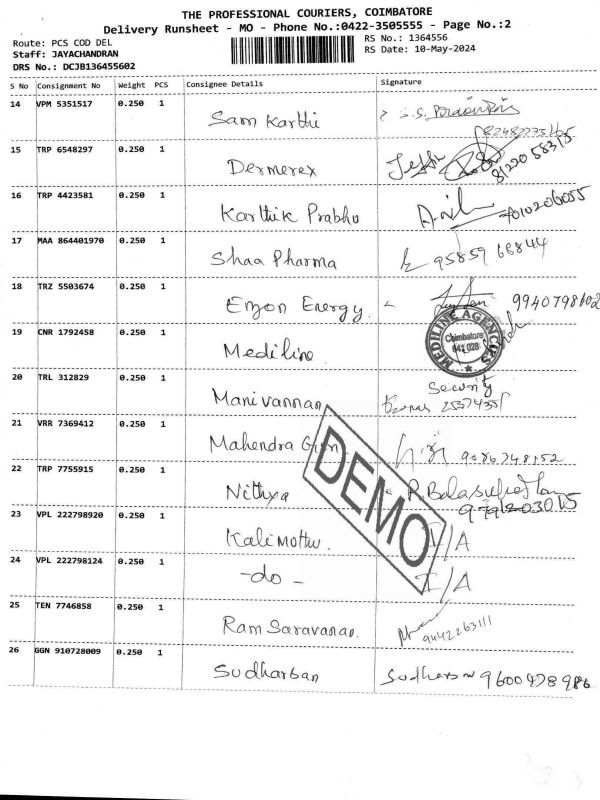 THE PROFESSIONAL COURIERS, COIMBATORE
Delivery Runsheet - MO - Phone No.:0422-3505555 - Page No.:2
Route: PCS COD DEL
RS No.: 1364556
Staff: JAYACHANDRAN
RS Date: 10-May-2024
DRS No.: DCJB136455602
S No Consignment No Weight PCS Consignee Details Signature
14 VPM 5351517 0.250 1 Sam Karthi
15 TRP 6548297 0.250 1 Dermerex 8122058315
16 TRP 4423581 0.250 1 Karthik Prabhu Anil 7010206055
17 MAA 864401970 0.250 1 Shaa Pharma 9585968844
18 TRZ 5503674 0.250 1 Enzon Energy. 9940798602
19 CNR 1792458 0.250 1 Mediline. MEDILINE AGENCIES Coimbatore 641 028
20 TRL 312829 0.250 1 Manivannan Security
21 VRR 7369412 0.250 1 Mahendra Giri 9086748152
22 TRP 7755915 0.250 1 Nithya
23 VPL 222798920 0.250 1 Kalimottu. I/A
24 VPL 222798124 0.250 1 -do- I/A
25 TEN 7746858 0.250 1 Ram Saravanan. 9442263111
26 GGN 910728009 0.250 1 Sudharsan Sudharsan 9600978986
DEMO